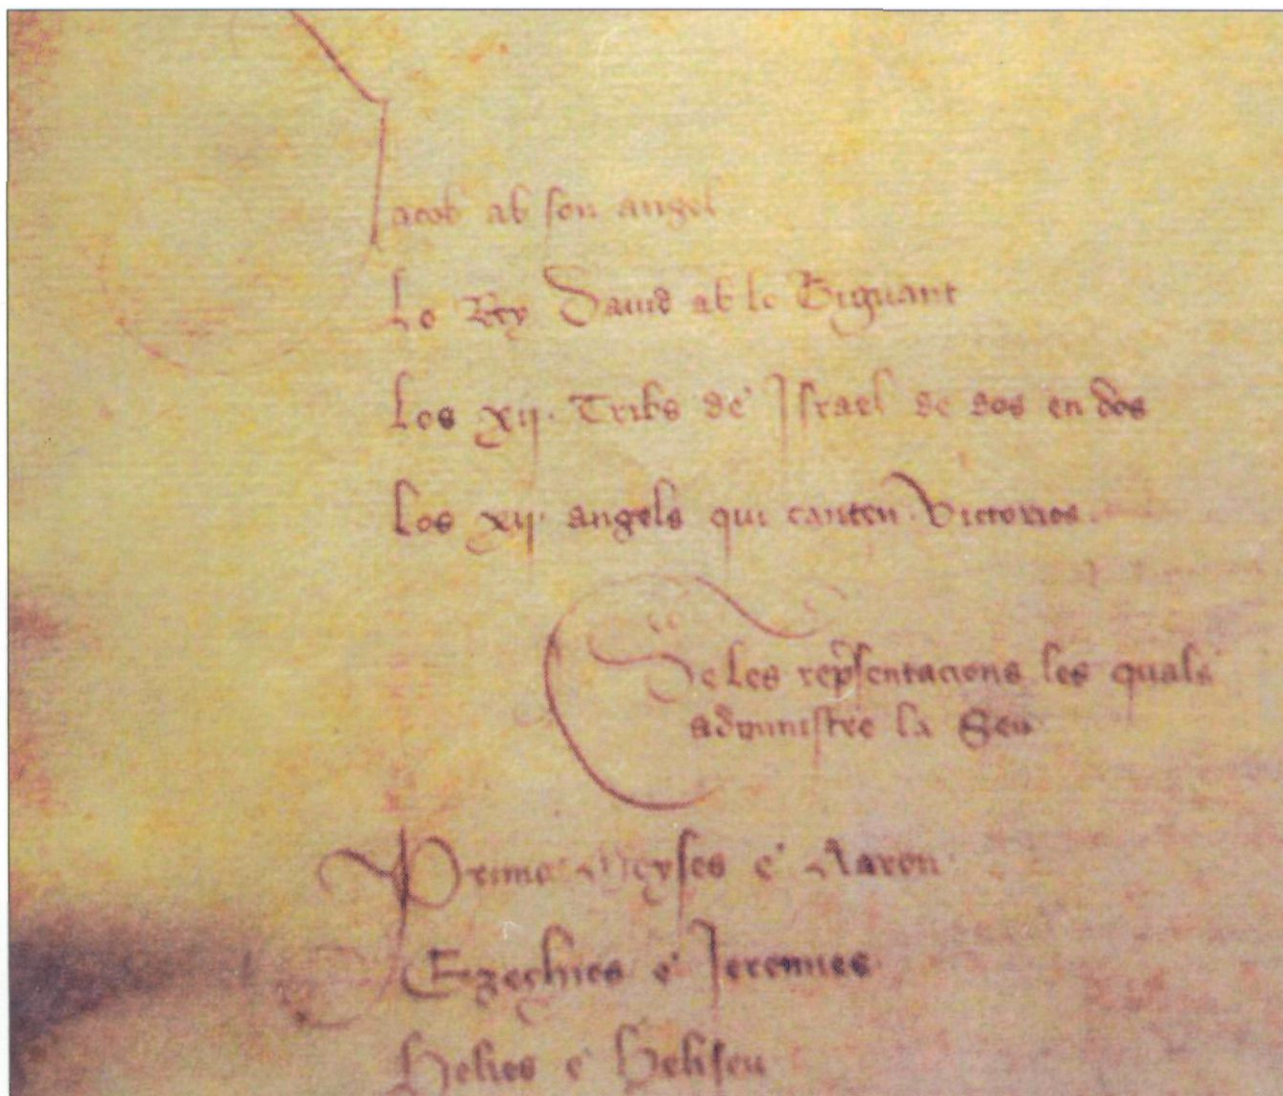 Jacob ab son angel
Lo Rey Dauid ab lo Giguant
Los xij. Tribs de Israel de dos en dos
Los xij. angels qui canten Victorios.
De les rep̃sentacions les quals
administre la Seu
Primo Moyses e Aaron
Ezechies e Jeremies
Helies e Heliseu